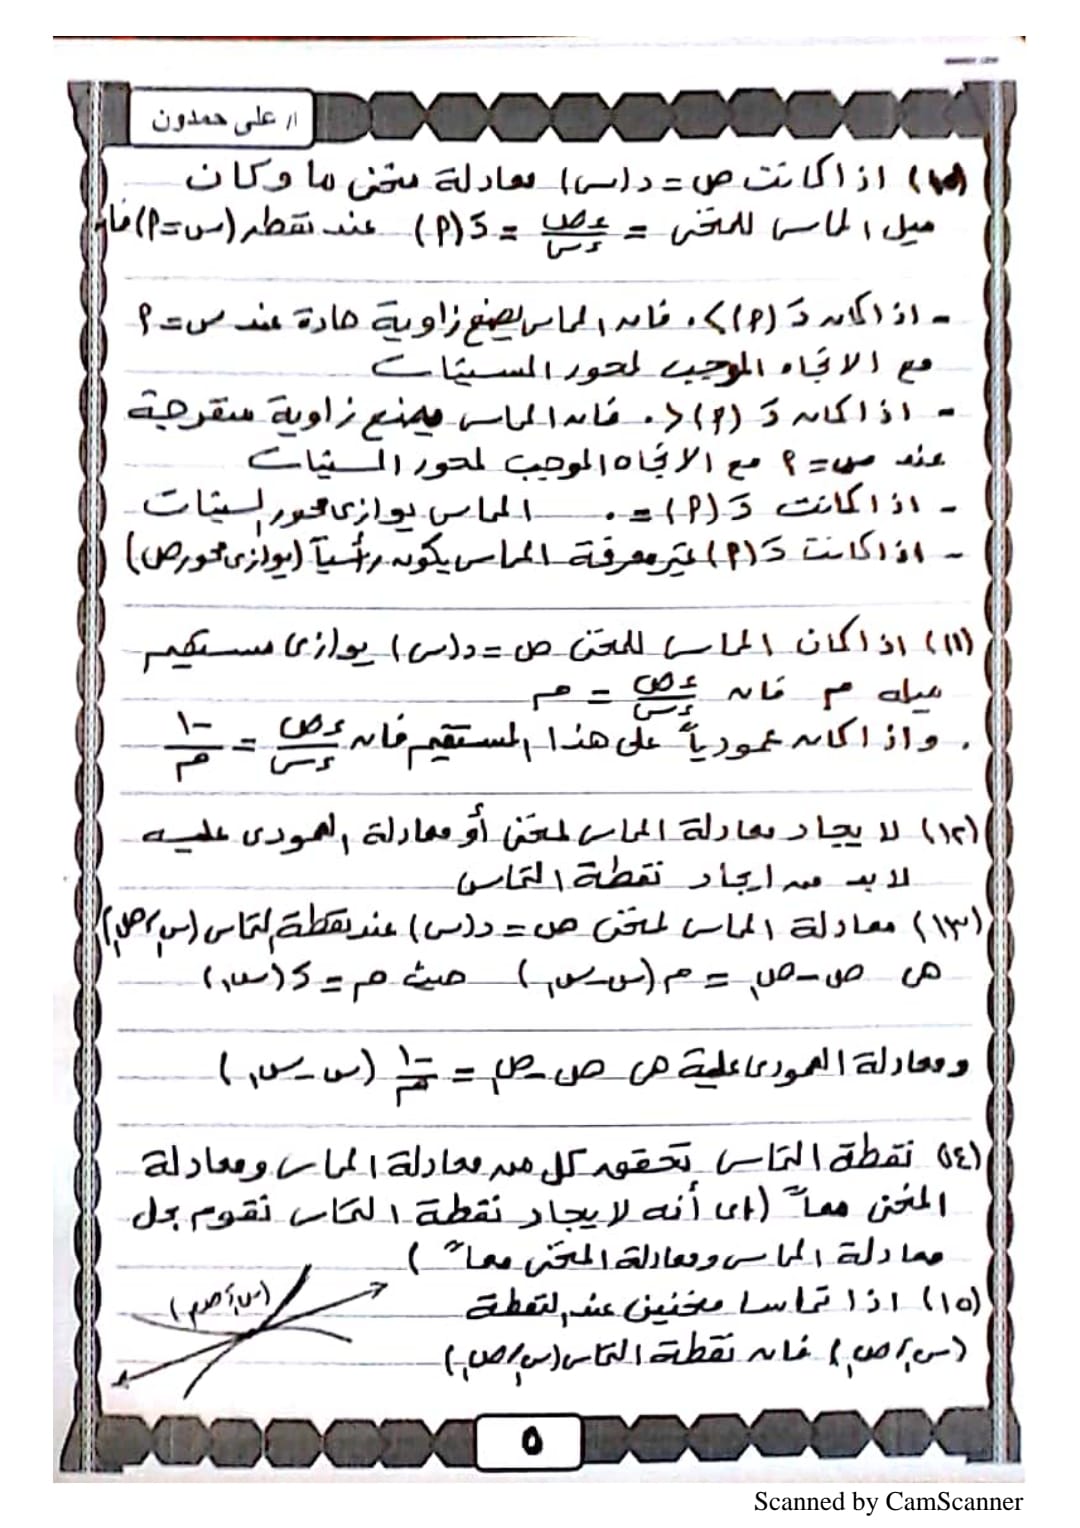 ا/ على حمدون
(١٠) اذا كانت ص = د(س) معادلة منحنى ما وكان
ميل المماس للمنحنى = ءص/ءس = دَ(م) عند نقطة (س=م) فان
- اذا كان دَ(م) > ٠ فان المماس يصنع زاوية حادة عند س=م
مع الاتجاه الموجب لمحور السينات
- اذا كان دَ(م) < ٠ فان المماس يصنع زاوية منفرجة
عند س=م مع الاتجاه الموجب لمحور السينات
- اذا كانت دَ(م) = ٠ المماس يوازى محور السينات
- اذا كانت دَ(م) غير معرفة المماس يكون رأسياً (يوازى محور ص)
(١١) اذا كان المماس للمنحنى ص = د(س) يوازى مستقيم
ميله م فان ءص/ءس = م
. واذا كان عمودياً على هذا المستقيم فان ءص/ءس = -١/م
(١٢) لايجاد معادلة المماس لمنحنى أو معادلة العمودى عليه
لابد من ايجاد نقطة التماس
(١٣) معادلة المماس لمنحنى ص = د(س) عند نقطة التماس (س١, ص١)
هى ص - ص١ = م(س - س١) حيث م = دَ(س١)
ومعادلة العمودى عليه هى ص - ص١ = -١/م (س - س١)
(١٤) نقطة التماس تحقق كل من معادلة المماس ومعادلة
المنحنى معاً (اى أنه لايجاد نقطة التماس نقوم بحل
معادلة المماس ومعادلة المنحنى معاً)
(١٥) اذا تماسا منحنيين عند لنقطة
(س١, ص١) فان نقطة التماس (س١, ص١)
(س١, ص١)
٥
Scanned by CamScanner